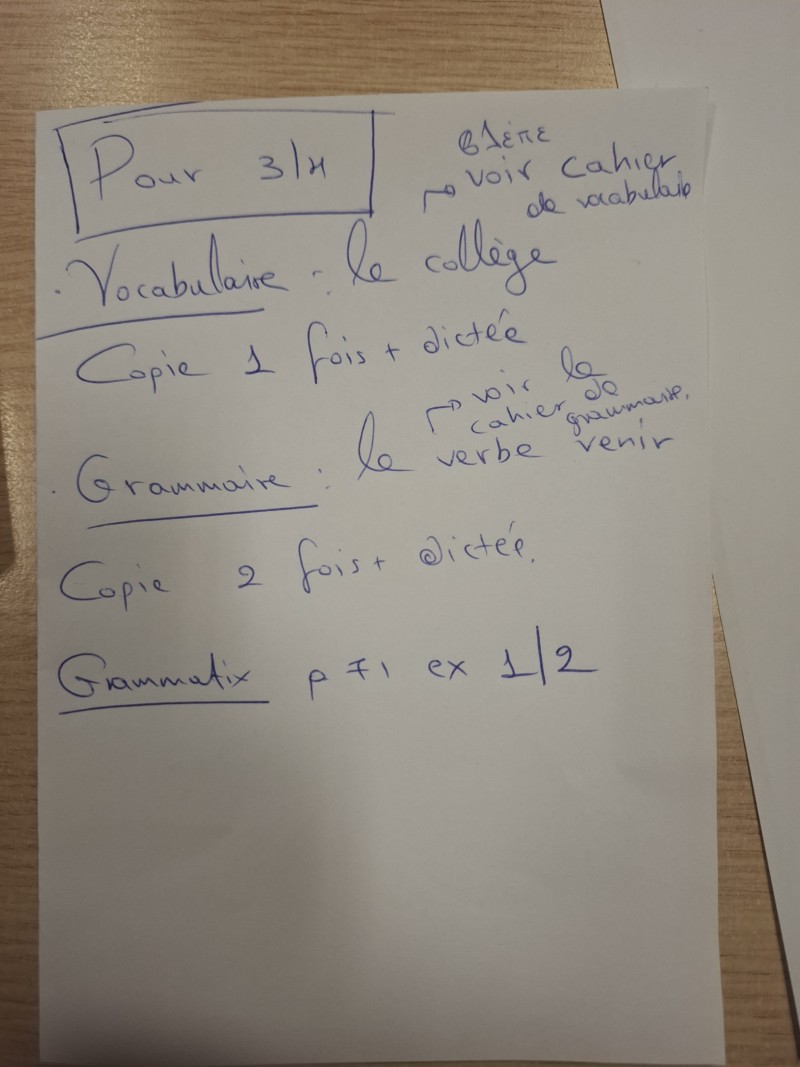 Pour 3/4
βλέπε
→ voir cahier
de vocabulaire
· Vocabulaire : le collège
Copie 1 fois + dictée
→ voir le
cahier de
grammaire.
· Grammaire : le verbe venir
Copie 2 fois + dictée.
Grammatix p 71 ex 1/2